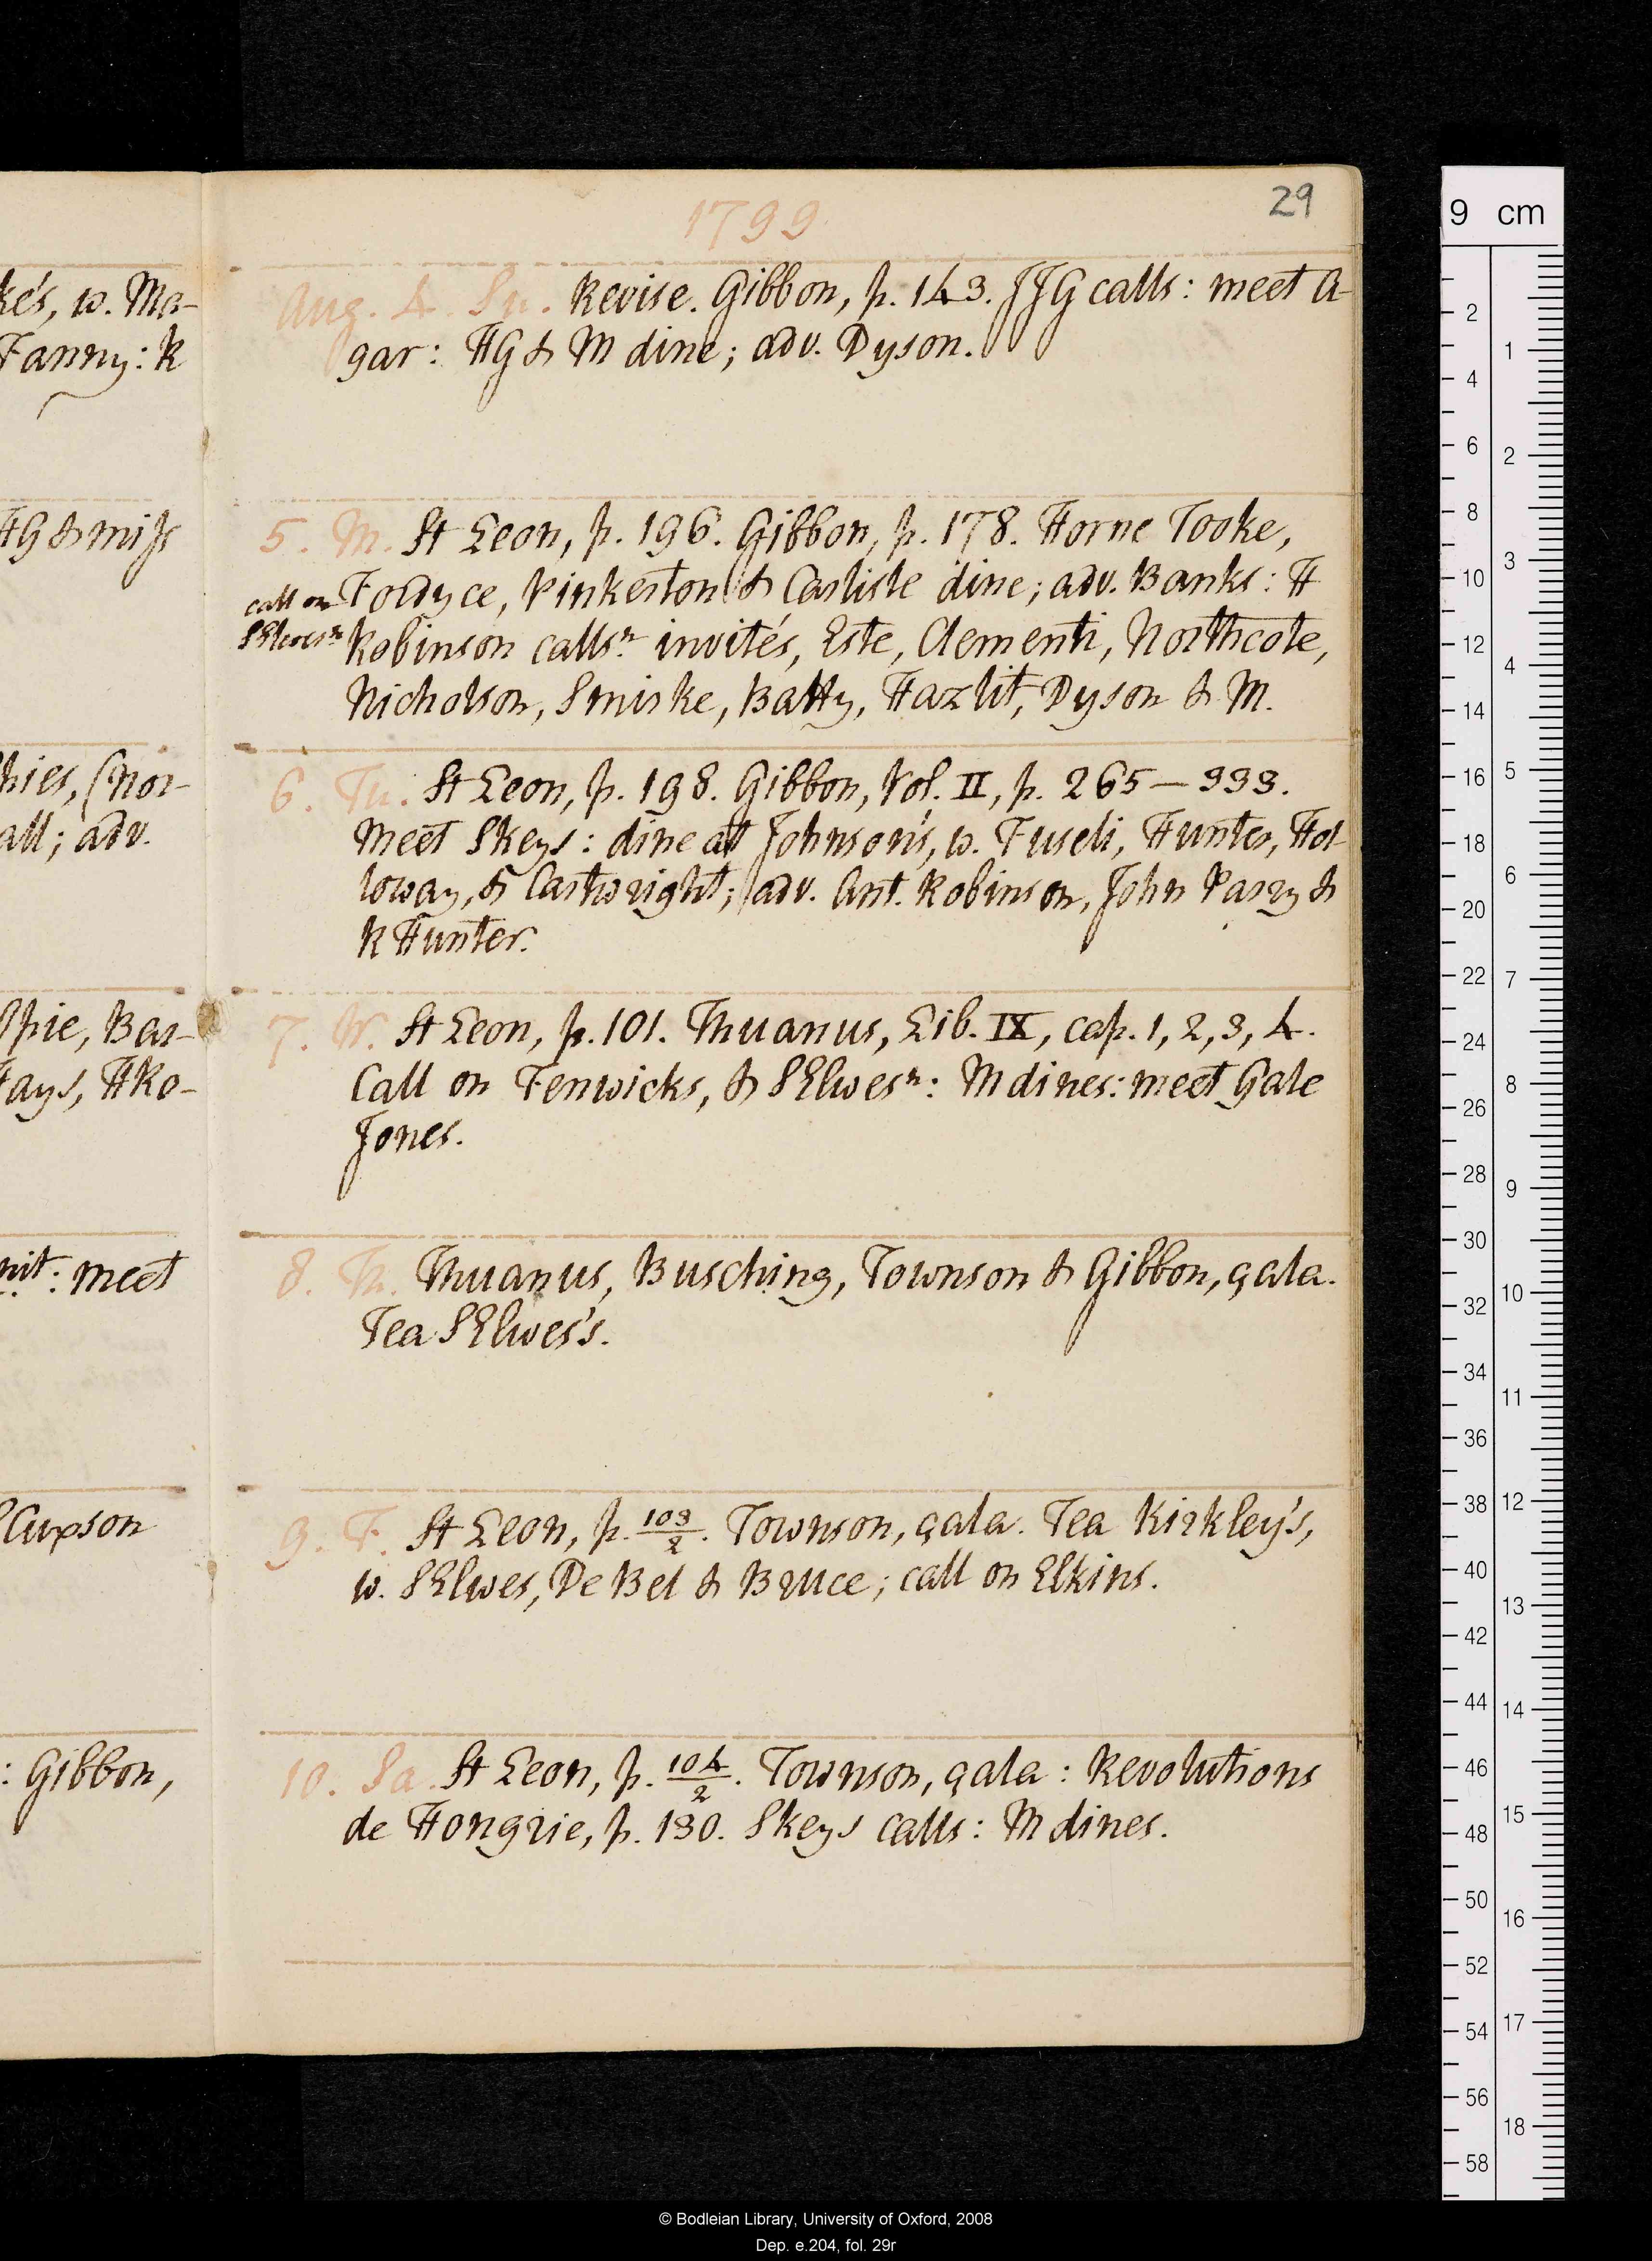 29
1799
ke's, w. Ma-
Fanny: R
HG & miss
hies, (Nor-
all; adv.
Opie, Bar-
Fays, HRo-
nit: meet
Cupson
: Gibbon,
Aug. 4. Su. Revise. Gibbon, p. 143. JJG calls: meet A-
gar: HG & M dine; adv. Dyson.
5. M. St Leon, p. 196. Gibbon, p. 178. Horne Tooke,
call on Fordyce, Pinkerton & Carlisle dine; adv. Banks: H
SElwesn Robinson callsn. invités, Este, Clementi, Northcote,
Nicholson, Smirke, Batty, Hazlit, Dyson & M.
6. Tu. St Leon, p. 198. Gibbon, Vol. II, p. 265—333.
Meet Skeys: dine at Johnson's, w. Fuseli, Hunter, Hol
loway, & Cartwright; adv. Ant. Robinson, John Parry &
R Hunter.
7. W. St Leon, p. 101. Thuanus, Lib. IX, cap. 1, 2, 3, 4.
Call on Fenwicks, & SElwesn: M dines: meet Gale
Jones.
8. Th. Thuanus, Busching, Townson & Gibbon, çala.
Tea SElwes's.
9. F. St Leon, p. 103/2. Townson, çala. Tea Kirkley's,
w. SElwes, De Bel & Bruce; call on Elkins.
10. Sa. St Leon, p. 104/2. Townson, çala: Revolutions
de Hongrie, p. 130. Skeys calls: M dines.
9 cm
2
4
6
8
10
12
14
16
18
20
22
24
26
28
30
32
34
36
38
40
42
44
46
48
50
52
54
56
58
1
2
3
4
5
6
7
8
9
10
11
12
13
14
15
16
17
18
© Bodleian Library, University of Oxford, 2008
Dep. e.204, fol. 29r